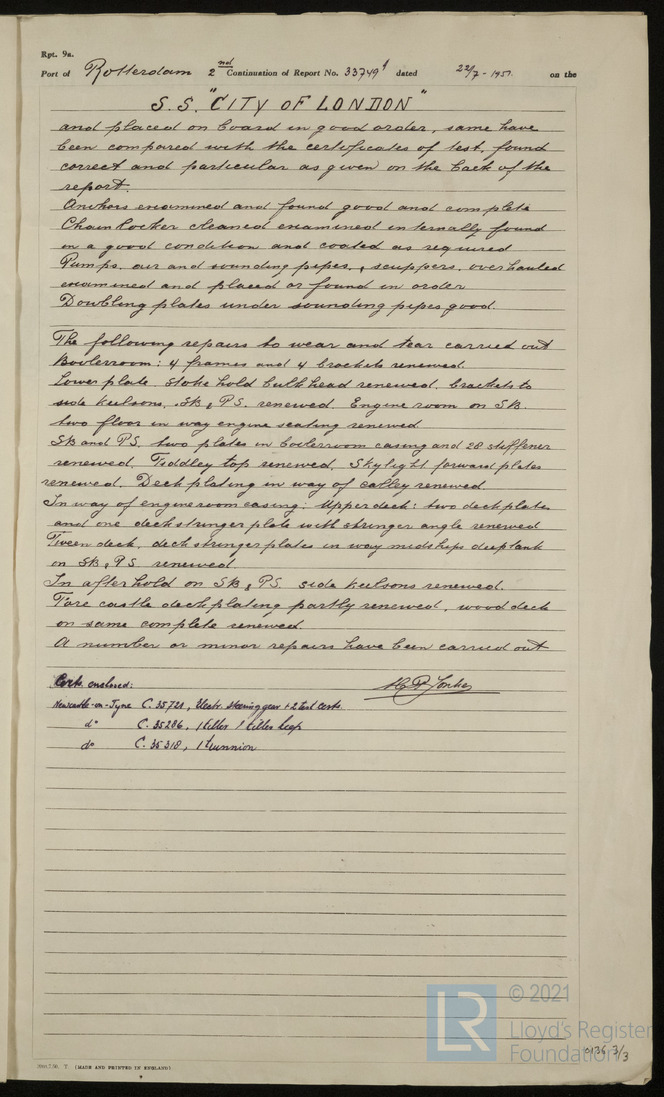 Rpt. 9a.
Port of Rotterdam 2nd Continuation of Report No. 33749 dated 22/7 - 1951 on the
S.S. "CITY OF LONDON"
and placed on board in good order, same have
been compared with the certificates of test, found
correct and particular as given on the back of the
report.
Anchors examined and found good and complete
Chainlocker cleaned examined internally found
in a good condition and coated as required
Pumps, air and sounding pipes, & scuppers, overhauled
examined and placed or found in order
Doubling plates under sounding pipes good.
The following repairs to wear and tear carried out
Boilerroom: 4 frames and 4 brackets renewed.
Lower plate, stokehold bulkhead renewed, brackets to
side keelsons, SB & PS. renewed, Engine room on SB.
two floor in way engine seating renewed
SB and PS. two plates in boilerroom casing and 28 stiffener
renewed, Fiddley top renewed, Skylight forward plates
renewed, Deckplating in way of galley renewed
In way of engineroom casing: Upperdeck: two deckplates
and one deckstringer plate with stringer angle renewed
Tween deck, deckstringer plates in way midships deeptank
on SB & PS renewed
In afterhold on SB & PS. side keelsons renewed.
Fore castle deckplating partly renewed, wood deck
on same complete renewed
A number or minor repairs have been carried out
Certs enclosed:
Newcastle-on-Tyne C. 35721, Electr. steering gear + 2 test certs.
do C. 35286, 1 tiller
do C. 35318, 1 trunnion
© 2021
Lloyd's Register
Foundation
0136 3/3
(MADE AND PRINTED IN ENGLAND)